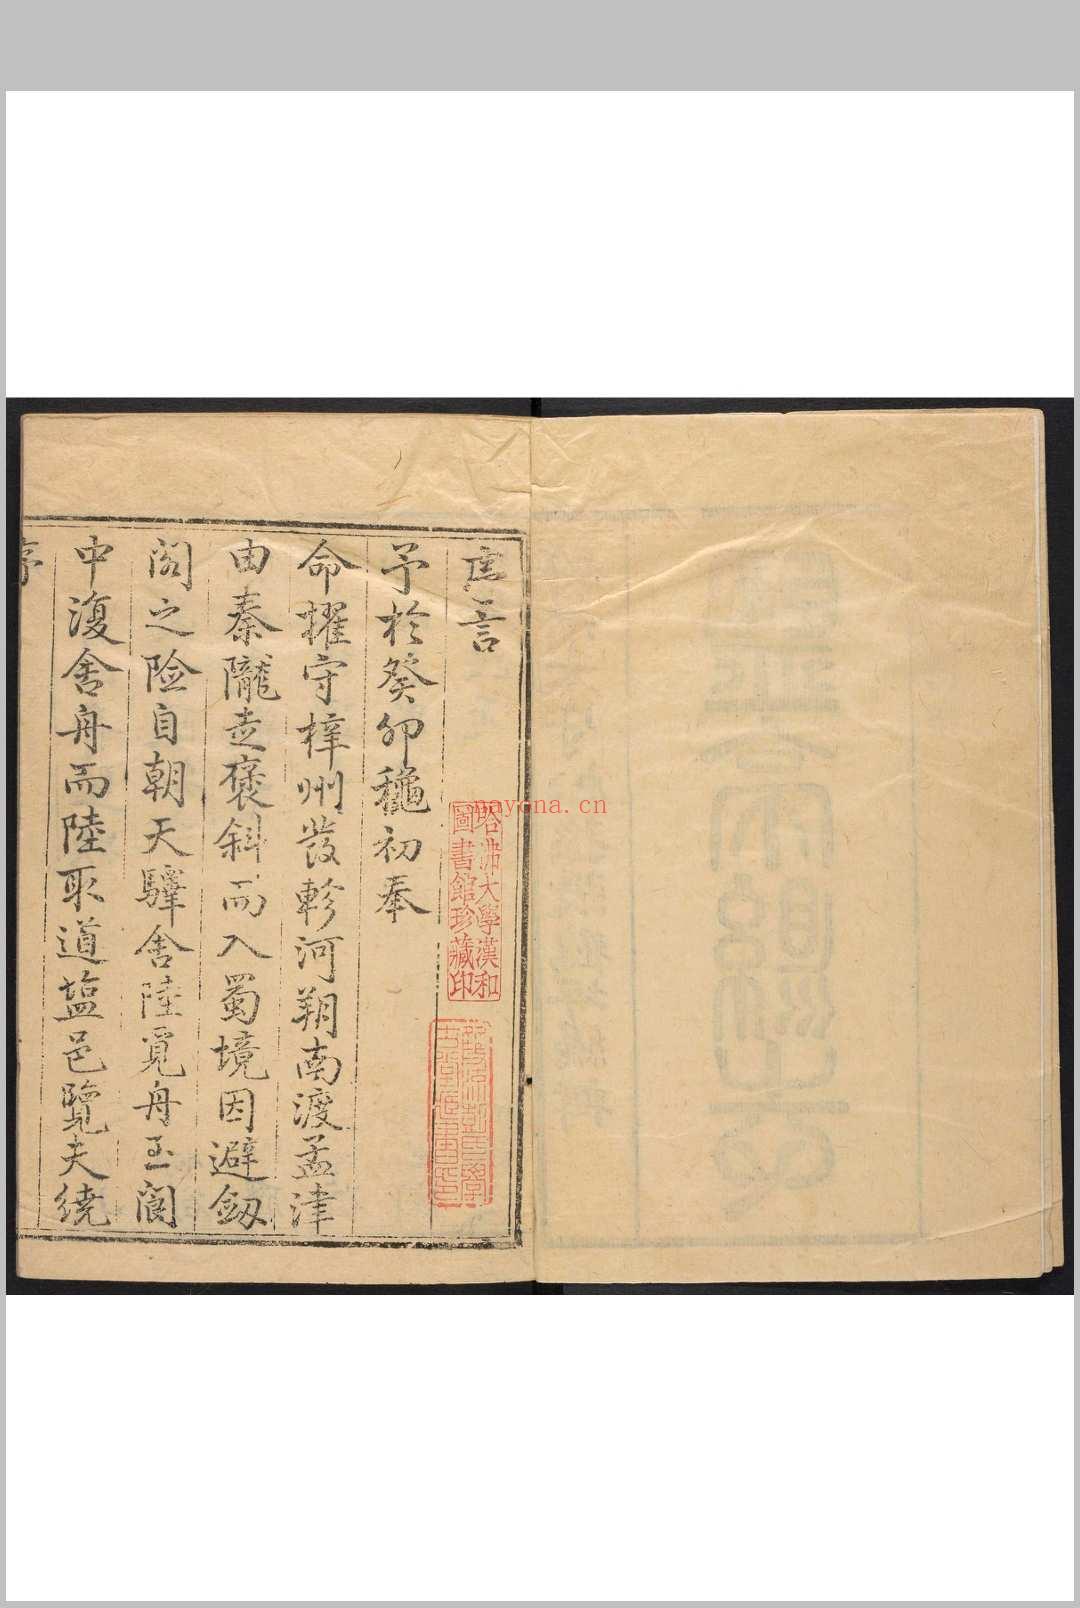 序言
予於癸卯龝初奉
命擢守梓州發軫河朔南渡孟津
由秦隴走褒斜而入蜀境因避劔
阁之險自朝天驛舍陸覓舟至閬
中復舍舟而陸取道塩邑覽夫繞
序
nayona.cn
哈沸大學漢和
圖書館珍藏印